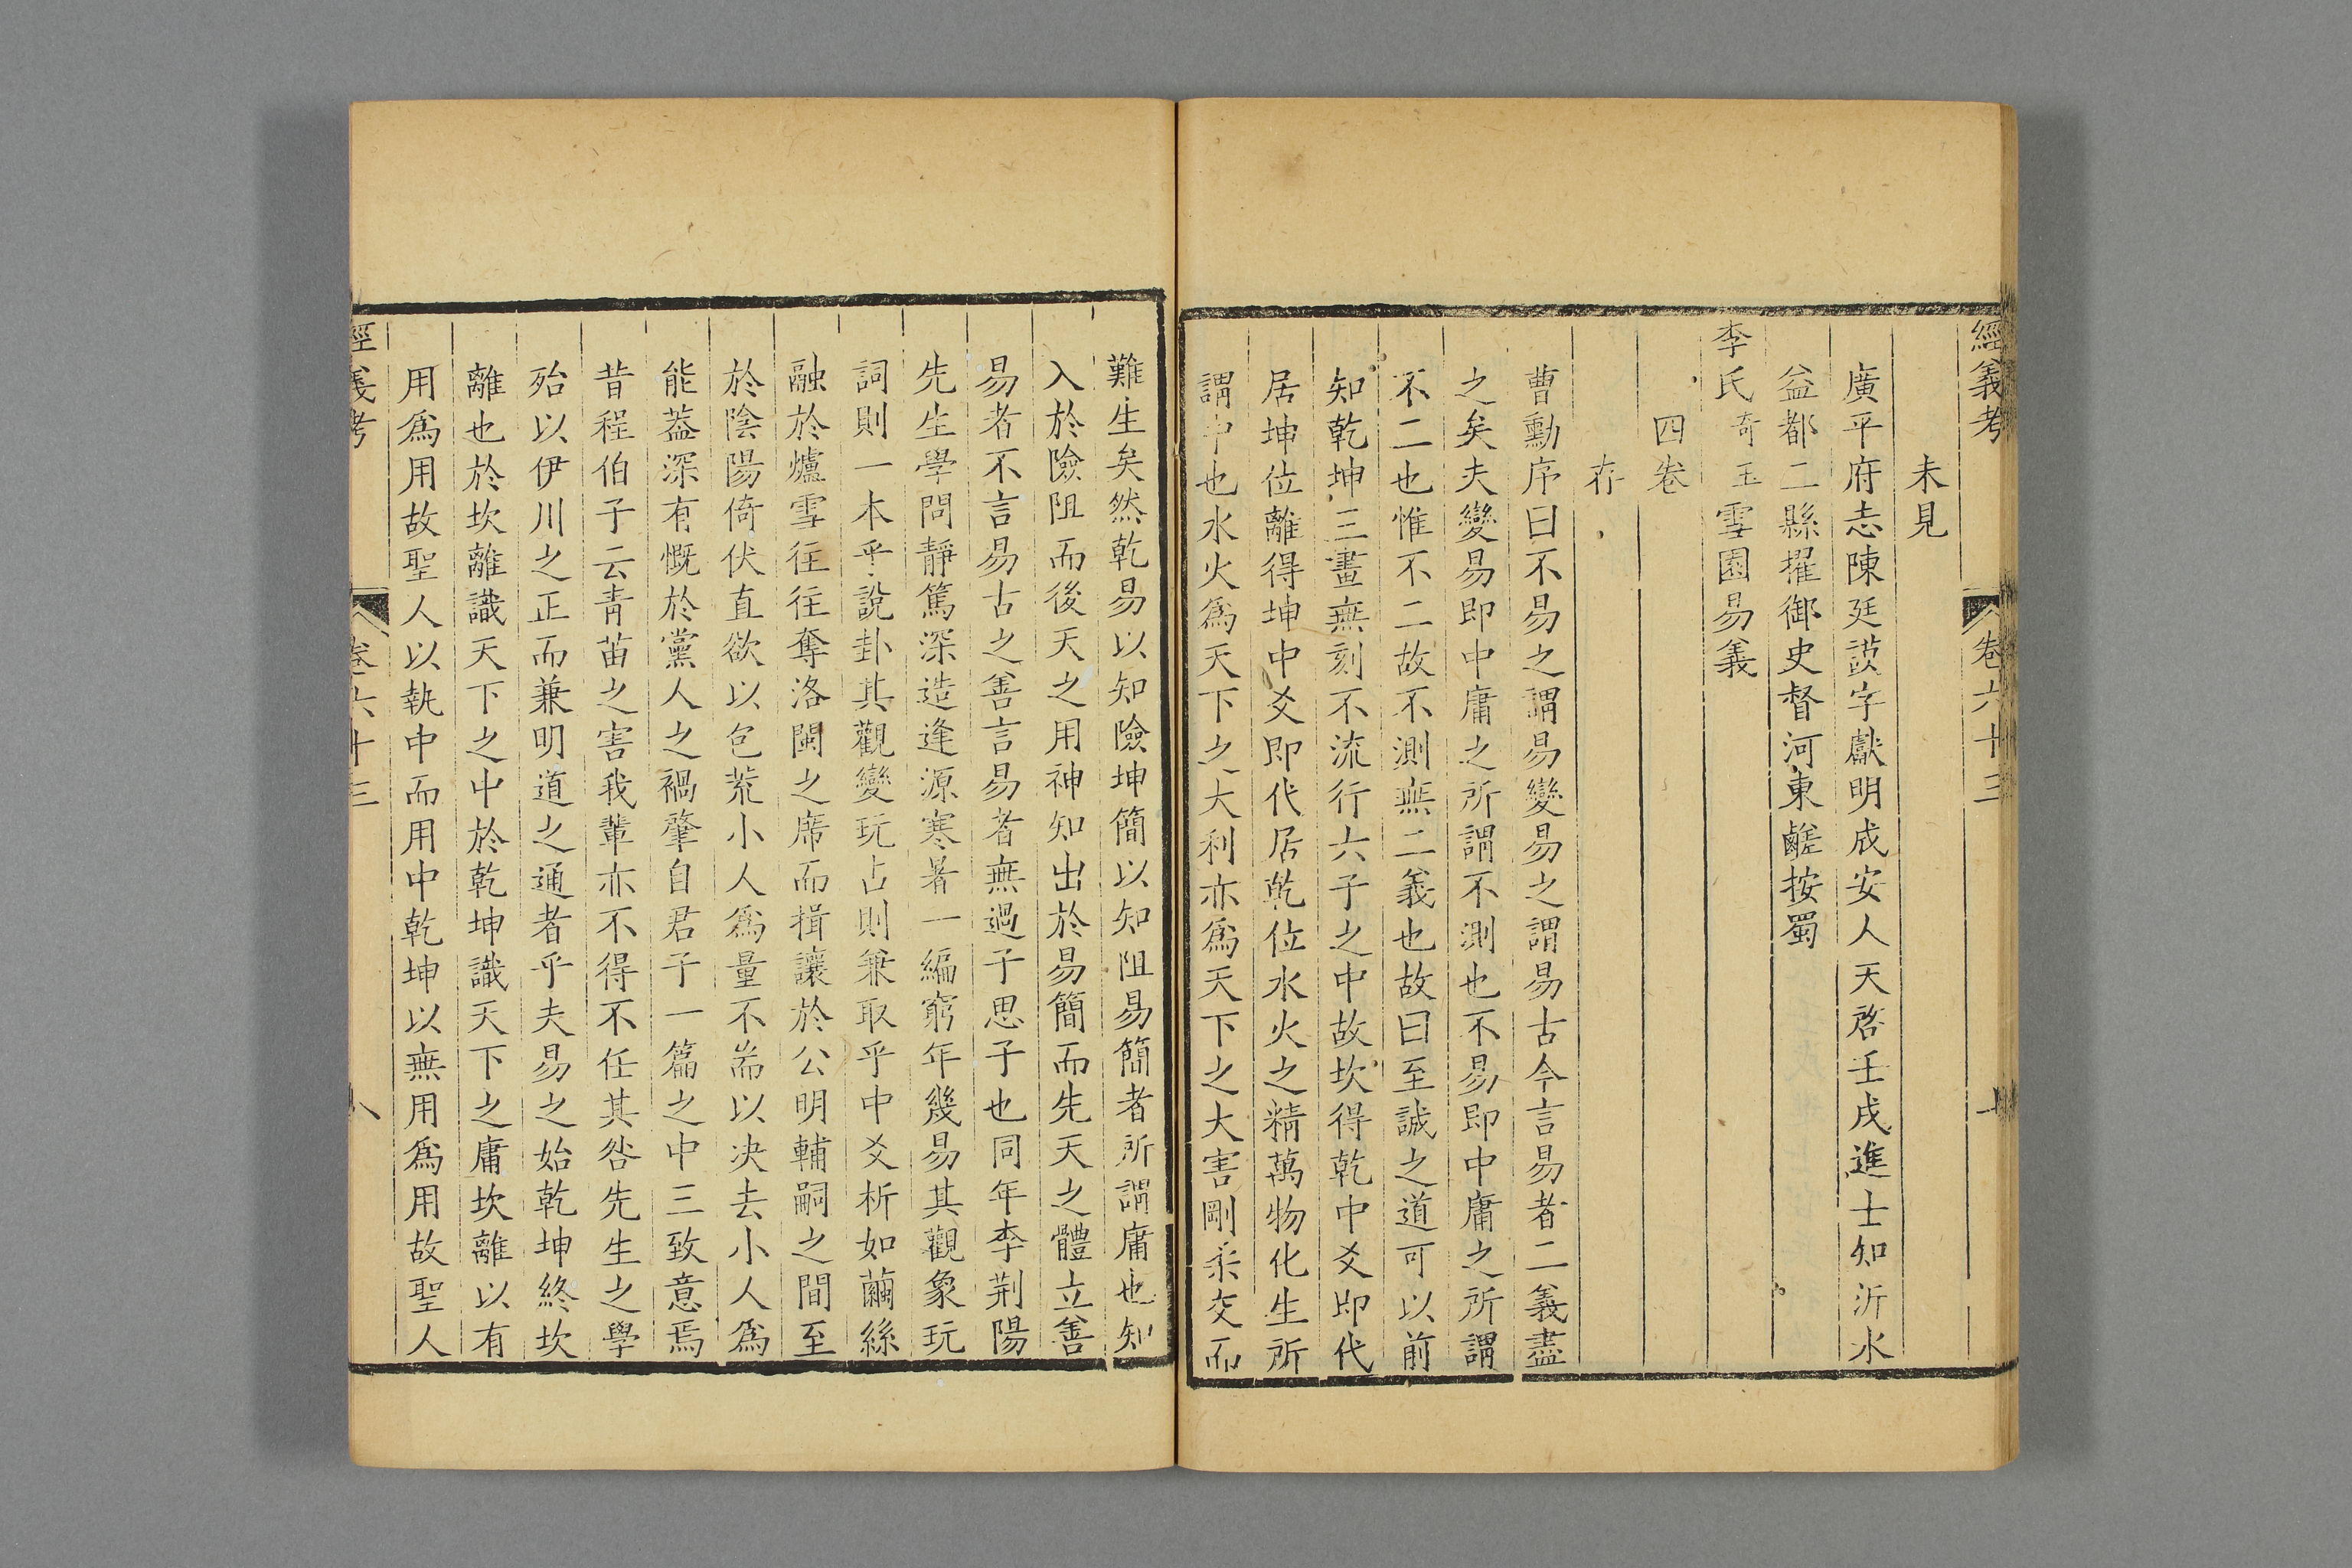 經義考 卷六十三
未見
廣平府志陳廷謨字獻明成安人天啓壬戌進士知沂水
益都二縣擢御史督河東鹺按蜀
李氏奇玉雪園易義
四卷
存
曹勳序曰不易之謂易變易之謂易古今言易者二義盡
之矣夫變易即中庸之所謂不測也不易即中庸之所謂
不二也惟不二故不測無二義也故曰至誠之道可以前
知乾坤三畫無刻不流行六子之中故坎得乾中爻即代
居坤位離得坤中爻即代居乾位水火之精萬物化生所
謂中也水火爲天下之大利亦爲天下之大害剛柔交而
難生矣然乾易以知險坤簡以知阻易簡者所謂庸也知
入於險阻而後天之用神知出於易簡而先天之體立善
易者不言易古之善言易者無過子思子也同年李荆陽
先生學問靜篤深造逢源寒暑一編窮年幾易其觀象玩
詞則一本乎說卦其觀變玩占則兼取乎中爻析如繭絲
融於爐雪往往奪洛閩之席而揖讓於公明輔嗣之間至
於陰陽倚伏直欲以包荒小人爲量不耑以决去小人爲
能蓋深有慨於黨人之禍肇自君子一篇之中三致意焉
昔程伯子云青苗之害我輩亦不得不任其咎先生之學
殆以伊川之正而兼明道之通者乎夫易之始乾坤終坎
離也於坎離識天下之中於乾坤識天下之庸坎離以有
用爲用故聖人以執中而用中乾坤以無用爲用故聖人
經義考 卷六十三 八